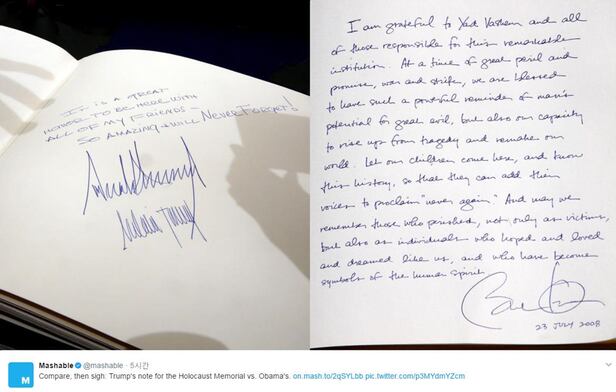 IT IS A GREAT
HONOR TO BE HERE WITH
ALL OF MY FRIENDS -
SO AMAZING & WILL NEVER FORGET!
I am grateful to Yad Vashem and all
of those responsible for this remarkable
institution. At a time of great peril and
promise, war and strife, we are blessed
to have such a powerful reminder of man's
potential for great evil, but also our capacity
to rise up from tragedy and remake our
world. Let our children come here, and know
this history, so that they can add their
voices to proclaim "never again." And may we
remember those who perished, not only as victims,
but also as individuals who hoped and loved
and dreamed like us, and who have become
symbols of the human spirit.
23 JULY 2008
Mashable @mashable · 5시간
Compare, then sigh: Trump's note for the Holocaust Memorial vs. Obama's. on.mash.to/2qSYLbb pic.twitter.com/p3MYdmYZcm